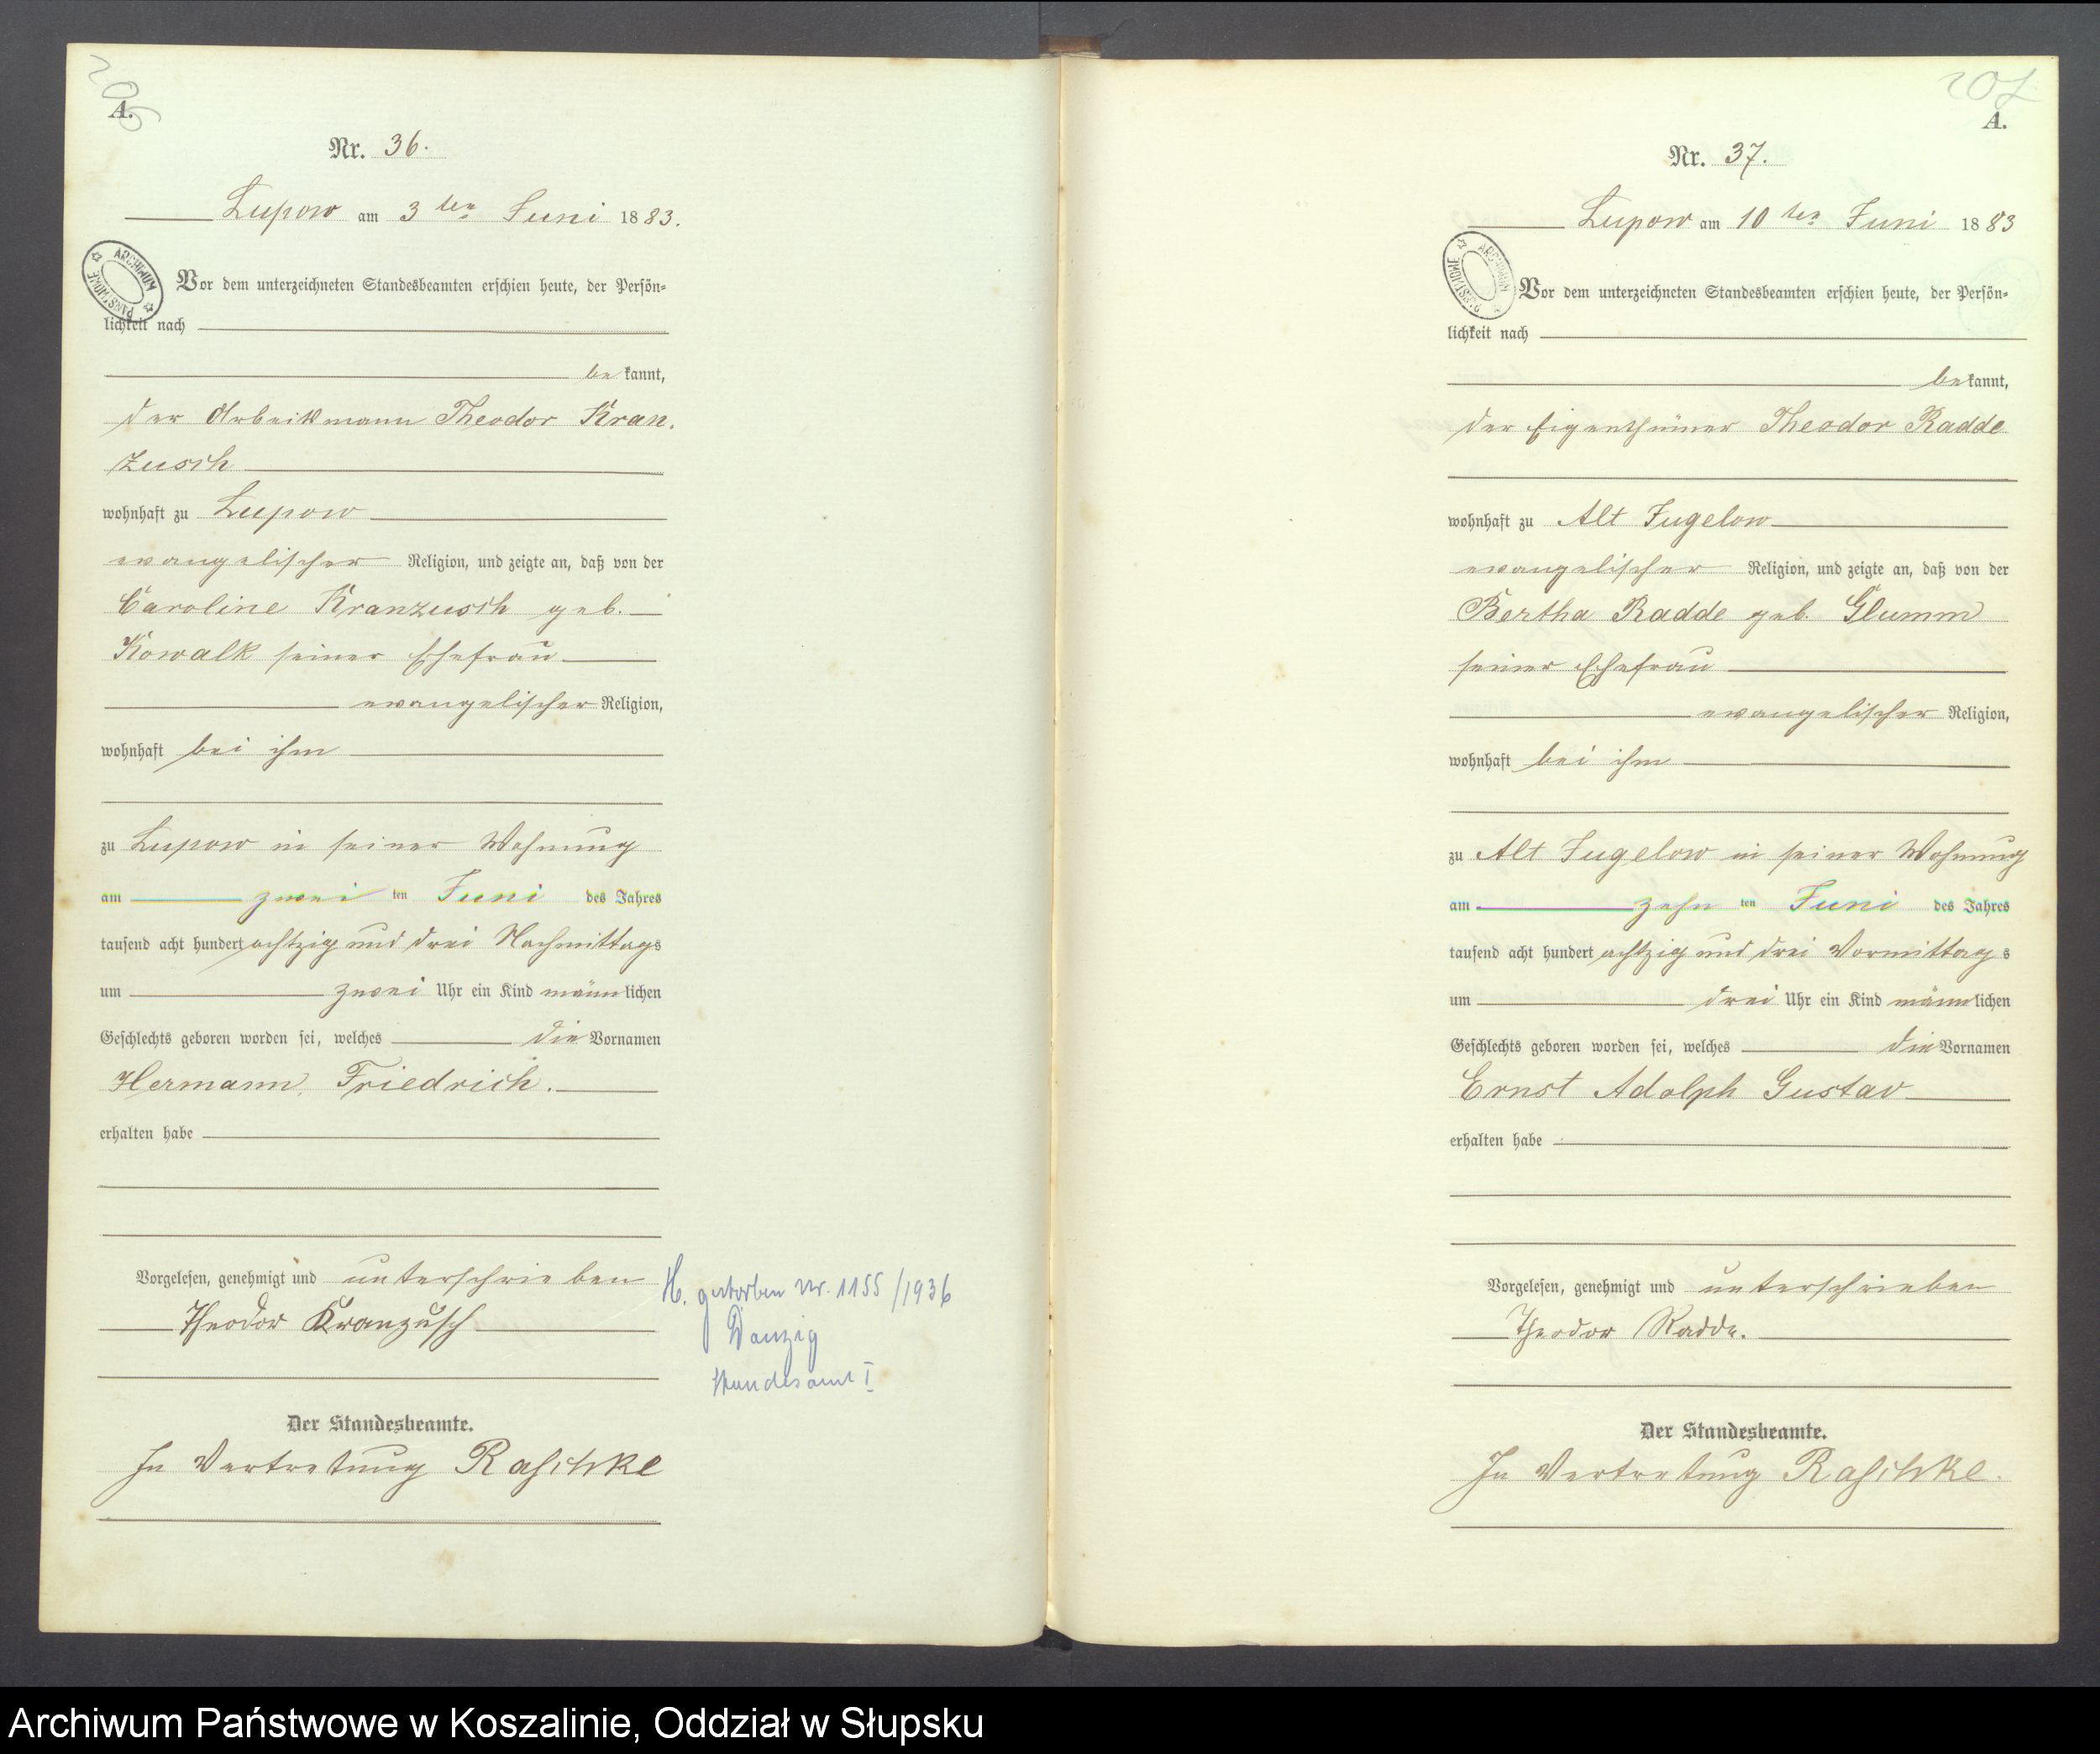 206
A.
Nr. 36.
Lupow am 3ten Juni 1883.
Vor dem unterzeichneten Standesbeamten erschien heute, der Persön-
lichkeit nach
bekannt,
der Arbeitsmann Theodor Kran-
zusch
wohnhaft zu Lupow
evangelischer Religion, und zeigte an, daß von der
Caroline Kranzusch geb.
Kowalk seiner Ehefrau
evangelischer Religion,
wohnhaft bei ihm
zu Lupow in seiner Wohnung
am zweiten Juni des Jahres
tausend acht hundert achtzig und drei Nachmittags
um zwei Uhr ein Kind männlichen
Geschlechts geboren worden sei, welches die Vornamen
Hermann, Friedrich.
erhalten habe
Vorgelesen, genehmigt und unterschrieben
Theodor Kranzusch
Der Standesbeamte.
In Vertretung Raschke
H. gestorben Nr. 1155/1936
Danzig
Standesamt I
ARCHIWUM PAŃSTWOWE
207
A.
Nr. 37.
Lupow am 10ten Juni 1883
Vor dem unterzeichneten Standesbeamten erschien heute, der Persön-
lichkeit nach
bekannt,
der Eigenthümer Theodor Radde
wohnhaft zu Alt Jugelow
evangelischer Religion, und zeigte an, daß von der
Bertha Radde geb. Glumm
seiner Ehefrau
evangelischer Religion,
wohnhaft bei ihm
zu Alt Jugelow in seiner Wohnung
am zehnten Juni des Jahres
tausend acht hundert achtzig und drei Vormittags
um drei Uhr ein Kind männlichen
Geschlechts geboren worden sei, welches die Vornamen
Ernst Adolph Gustav
erhalten habe
Vorgelesen, genehmigt und unterschrieben
Theodor Radde.
Der Standesbeamte.
In Vertretung Raschke.
ARCHIWUM PAŃSTWOWE
Archiwum Państwowe w Koszalinie, Oddział w Słupsku